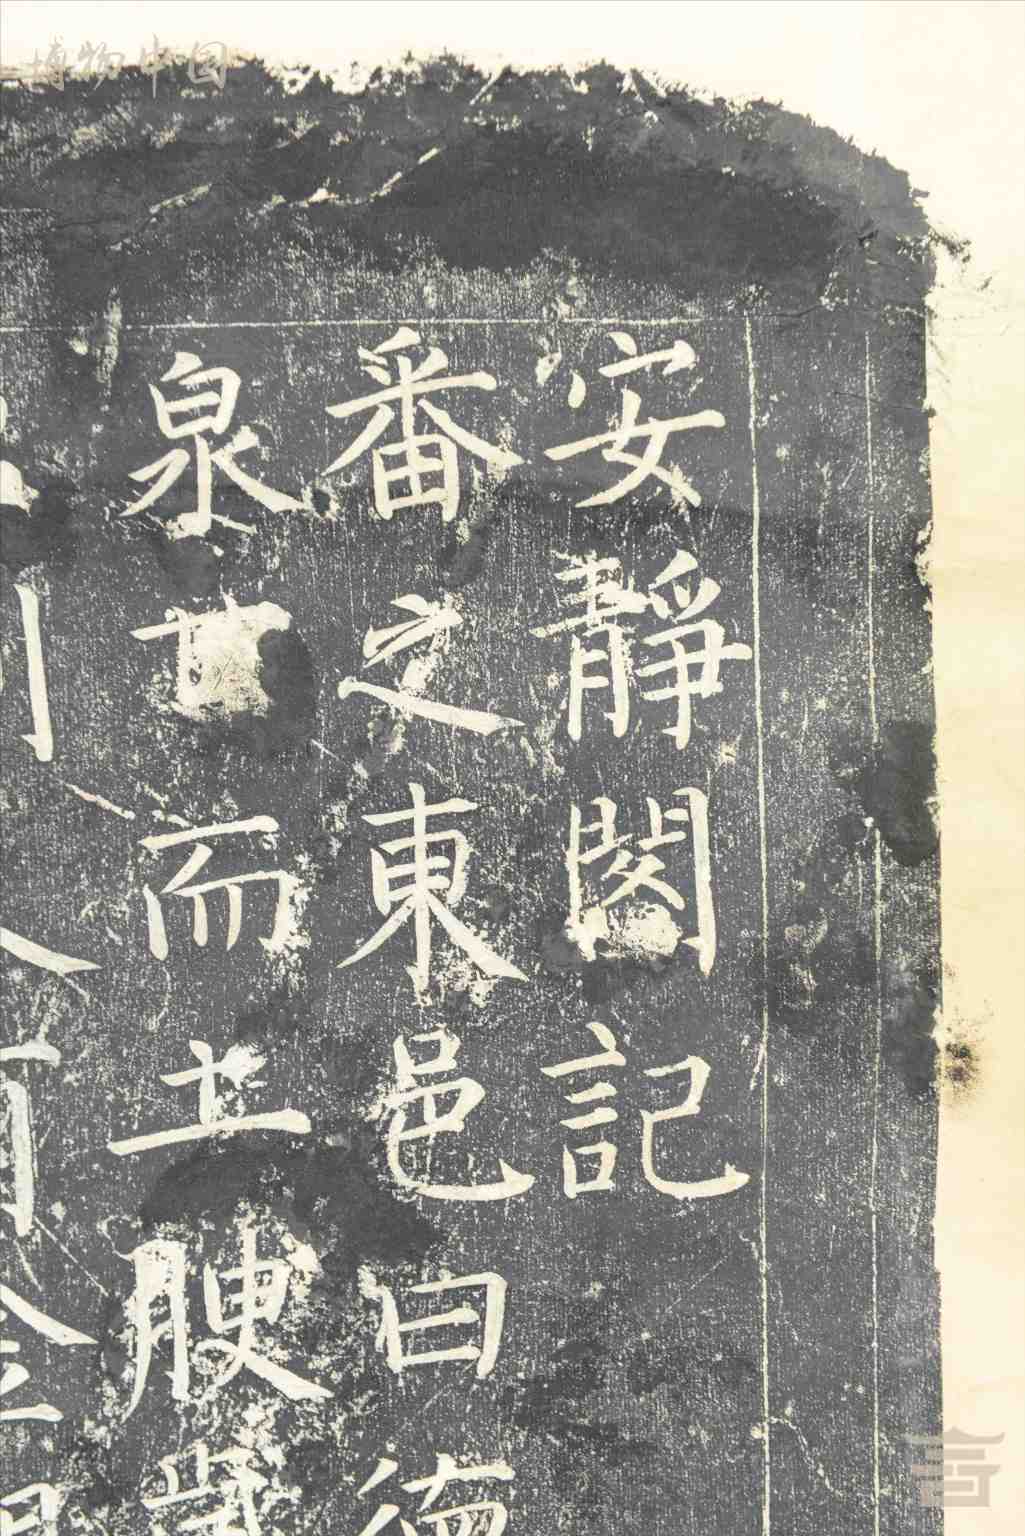 安靜閣記
番之東邑曰德
泉甘而土腴歲
博物中国